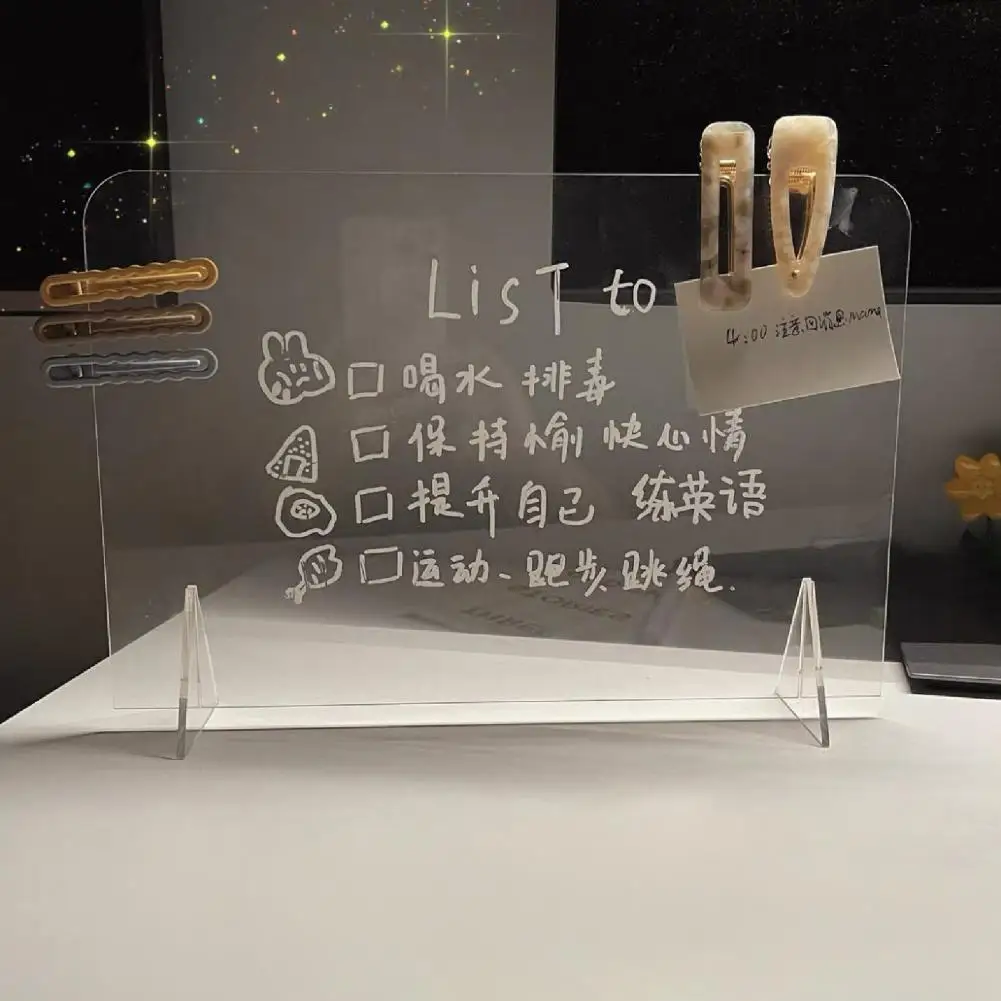 LisT to
4:00 注意回消息.mama
喝水 排毒
保持愉快心情
提升自己 练英语
运动、跑步跳绳.